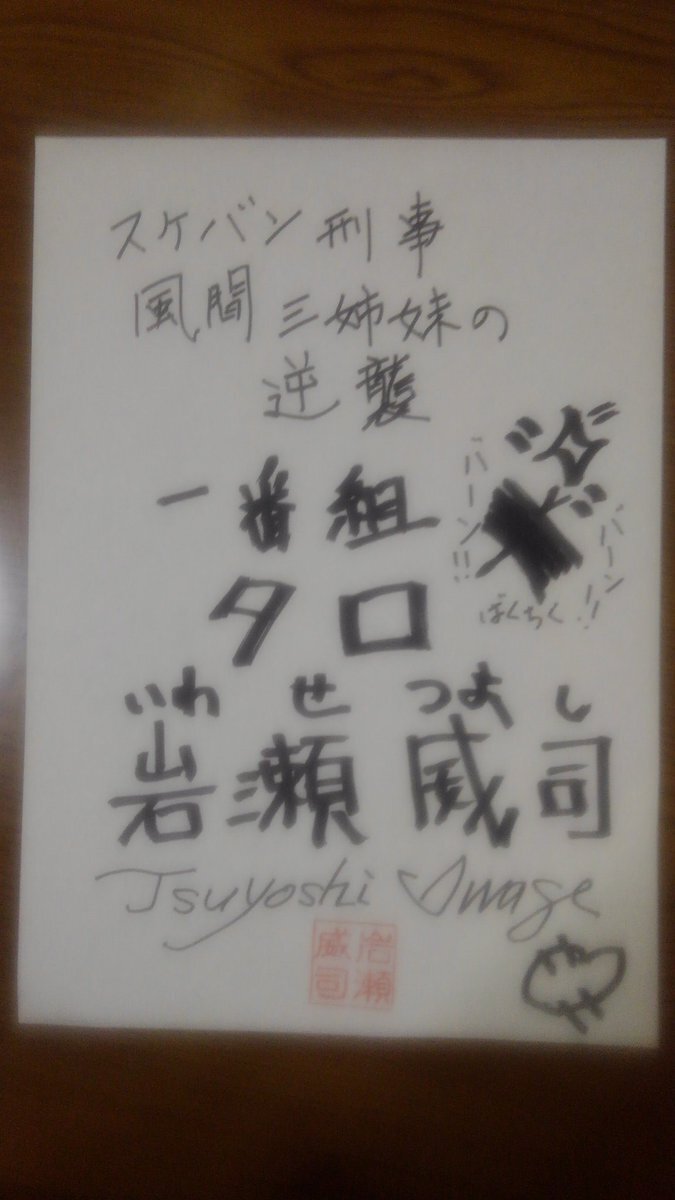 スケバン刑事
風間三姉妹の
逆襲
一番組
バーン!!
バーン!!
ばくちく
タロ
いわ せ つよ し
岩瀬威司
Tsuyoshi Iwase
岩瀬
威司